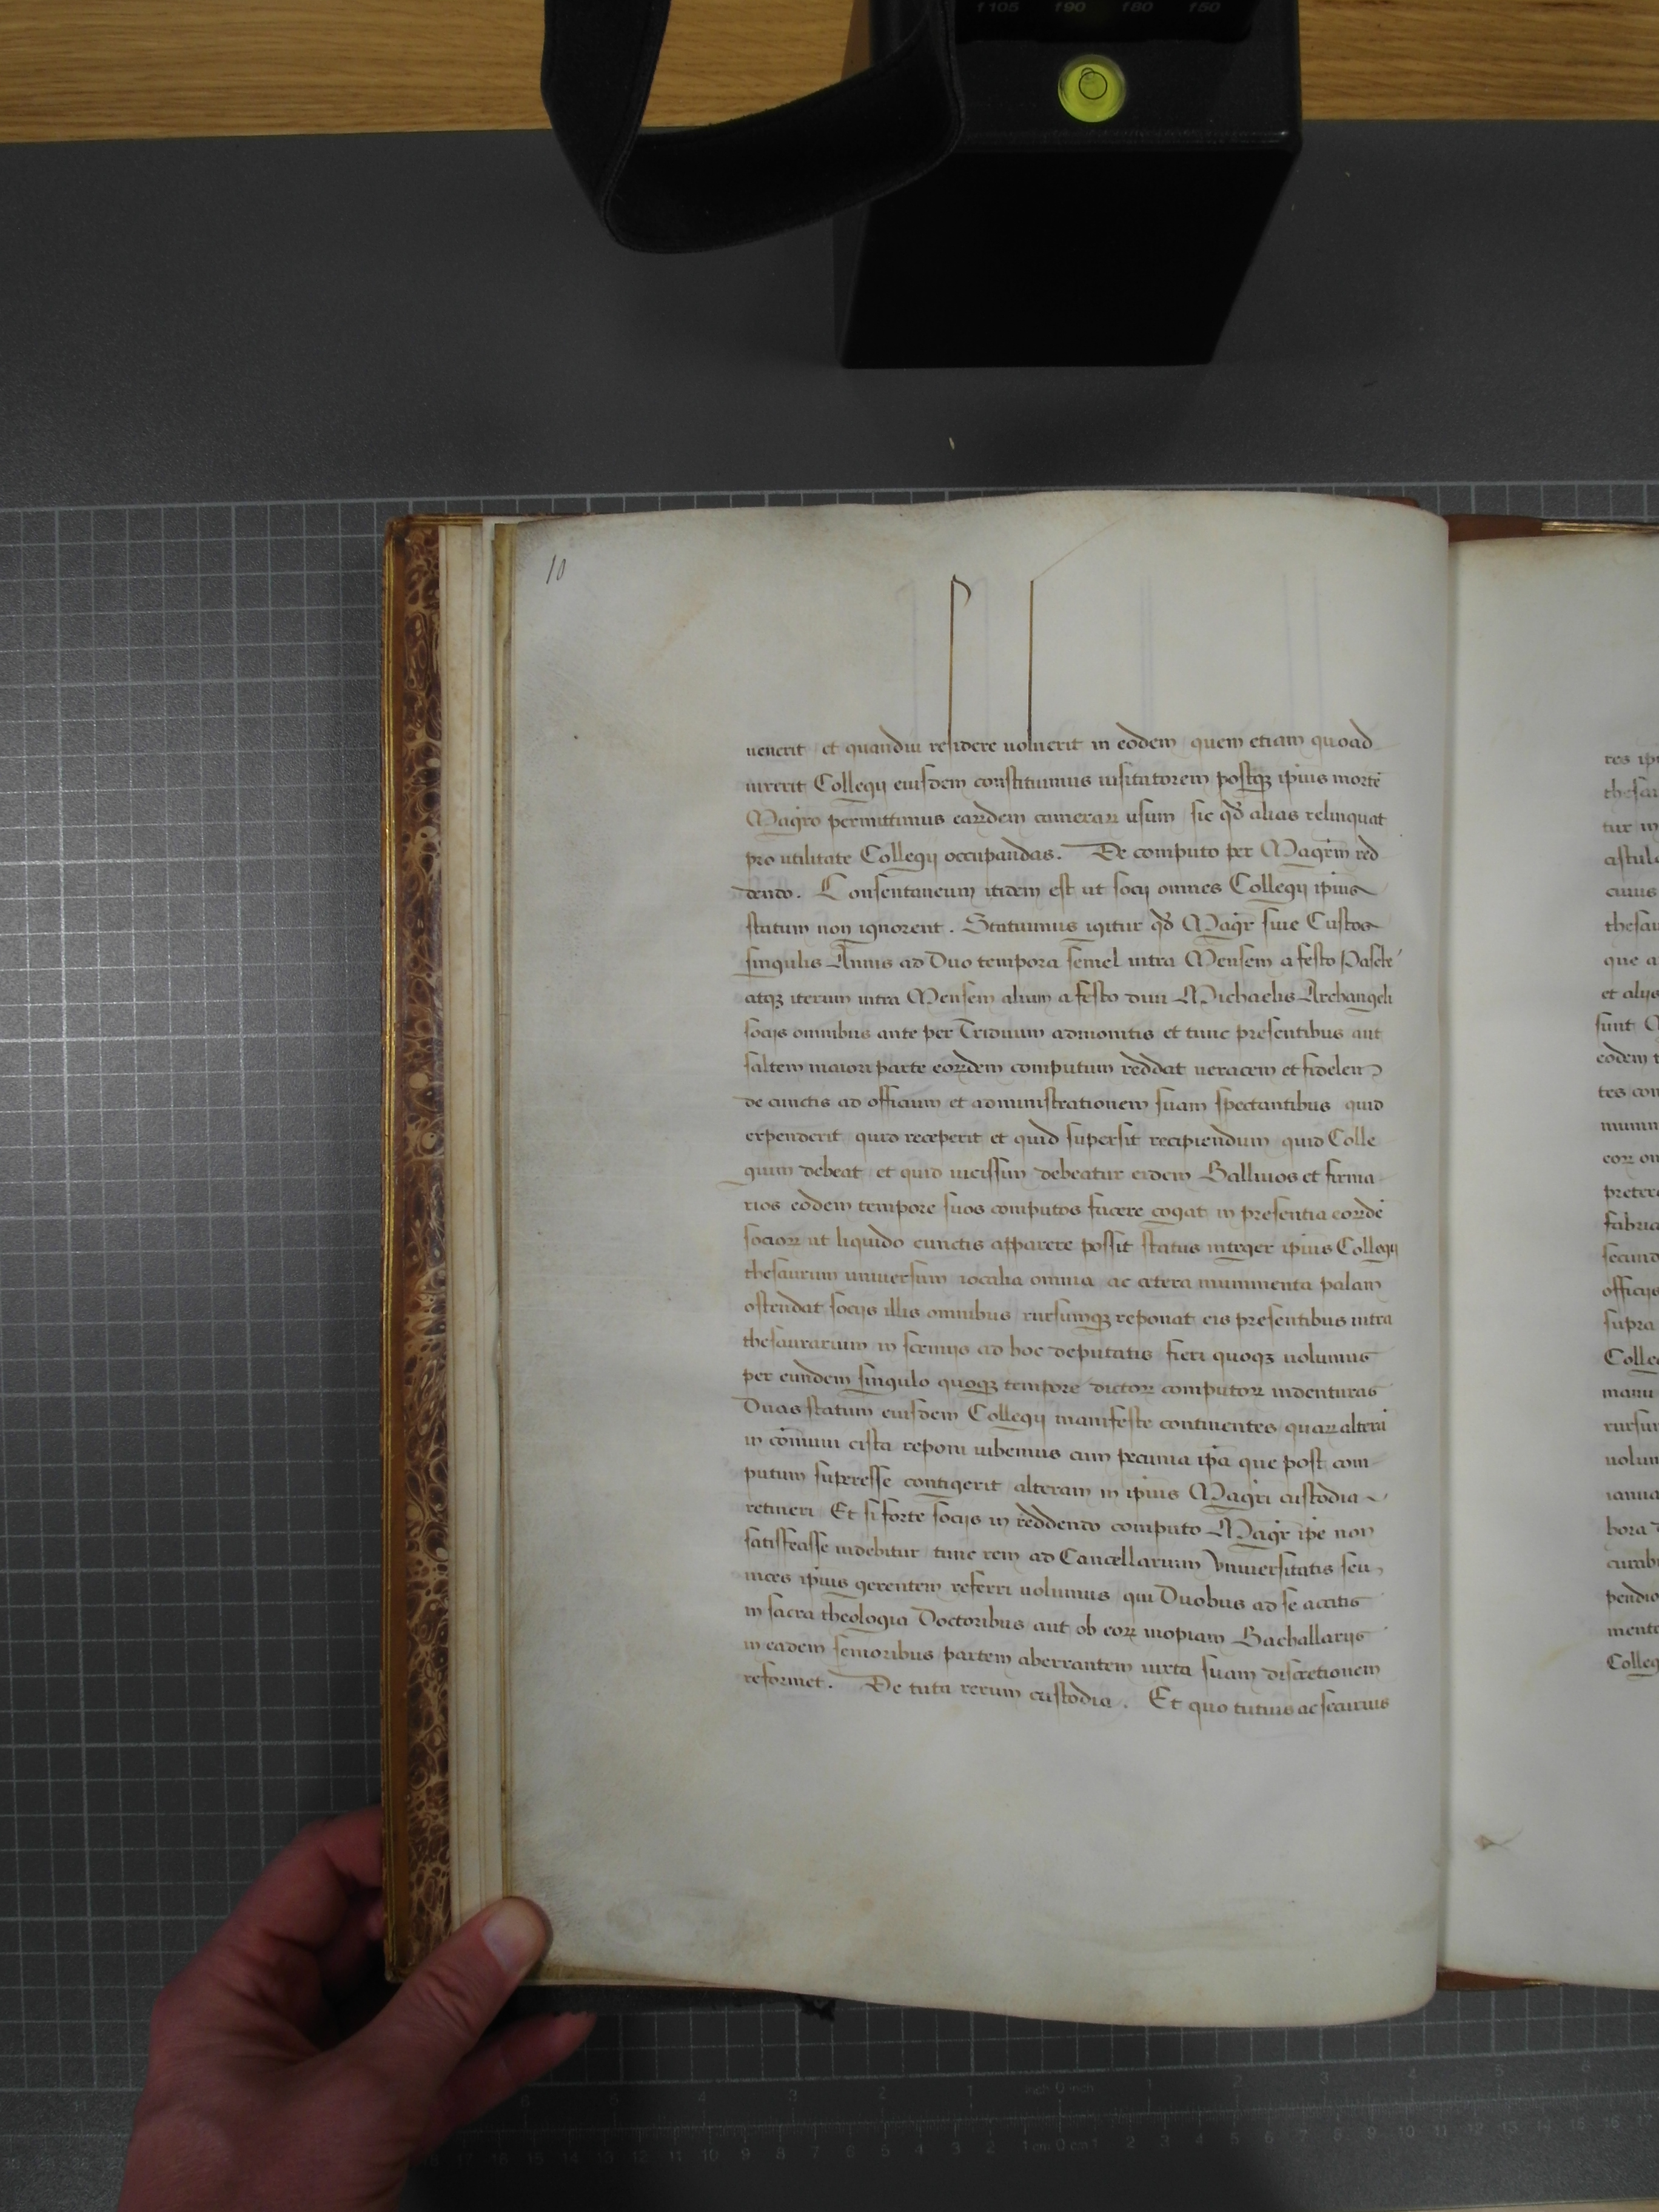 f105 f90 f80 f50
10
uenerit et quandiu residere uoluerit in eodem quem etiam quoad
uixerit Collegij eiusdem constituimus uisitatorem postqȝ ip̄ius mortē
Mag̃ro permittimus earꝝdem camerarꝝ usum sic qd̄ alias relinquat
pro utilitate Collegij occupandas. De computo per Mag̃rm red
dendo. Consentaneum itidem est ut socij omnes Collegij ip̄ius
statum non ignorent. Statuimus igitur qd̄ Mag̃r siue Custos
singulis Annis ad Duo tempora semel intra Mensem a festo Pasche
atqȝ iterum intra Mensem alium a festo diui Michaelis Archangeli
socijs omnibus ante per Triduum admonitis et tunc presentibus aut
saltem maiori parte eorꝝdem computum reddat ueracem et fidelem
de cunctis ad officium et administrationem suam spectantibus quid
expenderit quid receperit et quid supersit recipiendum quid Colle
gium debeat et quid uicissim debeatur eidem Balliuos et firma
rios eodem tempore suos computos facere cogat in presentia eorꝝdē
sociorꝝ ut liquido cunctis apparere possit status integer ip̄ius Collegij
thesaurum uniuersum iocalia omnia ac cetera munimenta palam
ostendat socijs illis omnibus rursumqȝ reponat eis presentibus intra
thesaurarium in scrinijs ad hoc deputatis fieri quoqȝ uolumus
per eundem singulo quoqȝ tempore dictorꝝ computorꝝ indenturas
Duas statum eiusdem Collegij manifeste continentes quarꝝ alterā
in com̄uni cista reponi iubemus cum pecunia ip̄a que post com
putum superesse contigerit alteram in ip̄ius Mag̃ri custodia
retineri Et si forte socijs in reddendo computo Mag̃r ip̄e non
satisfecisse uidebitur tunc rem ad Cancellarium Vniuersitatis seu
uices ip̄ius gerentem referri uolumus qui Duobus ad se accitis
in sacra theologia Doctoribus aut ob eorꝝ inopiam Bachallarijs
in eadem senioribus partem aberrantem iuxta suam discretionem
reformet. De tuta rerum custodia. Et quo tutius ac securius